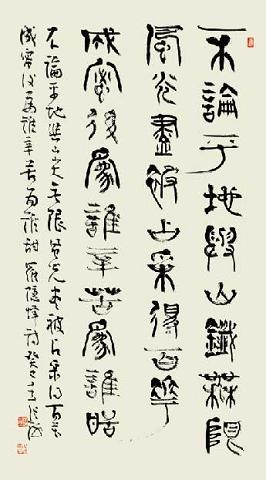 不論平地與山鑯無限
風光盡被占采得百花
成蜜後爲誰辛苦爲誰甜
不論平地與山尖無限風光盡被占采得百花
成蜜後爲誰辛苦爲誰甜 羅隱蜂詩